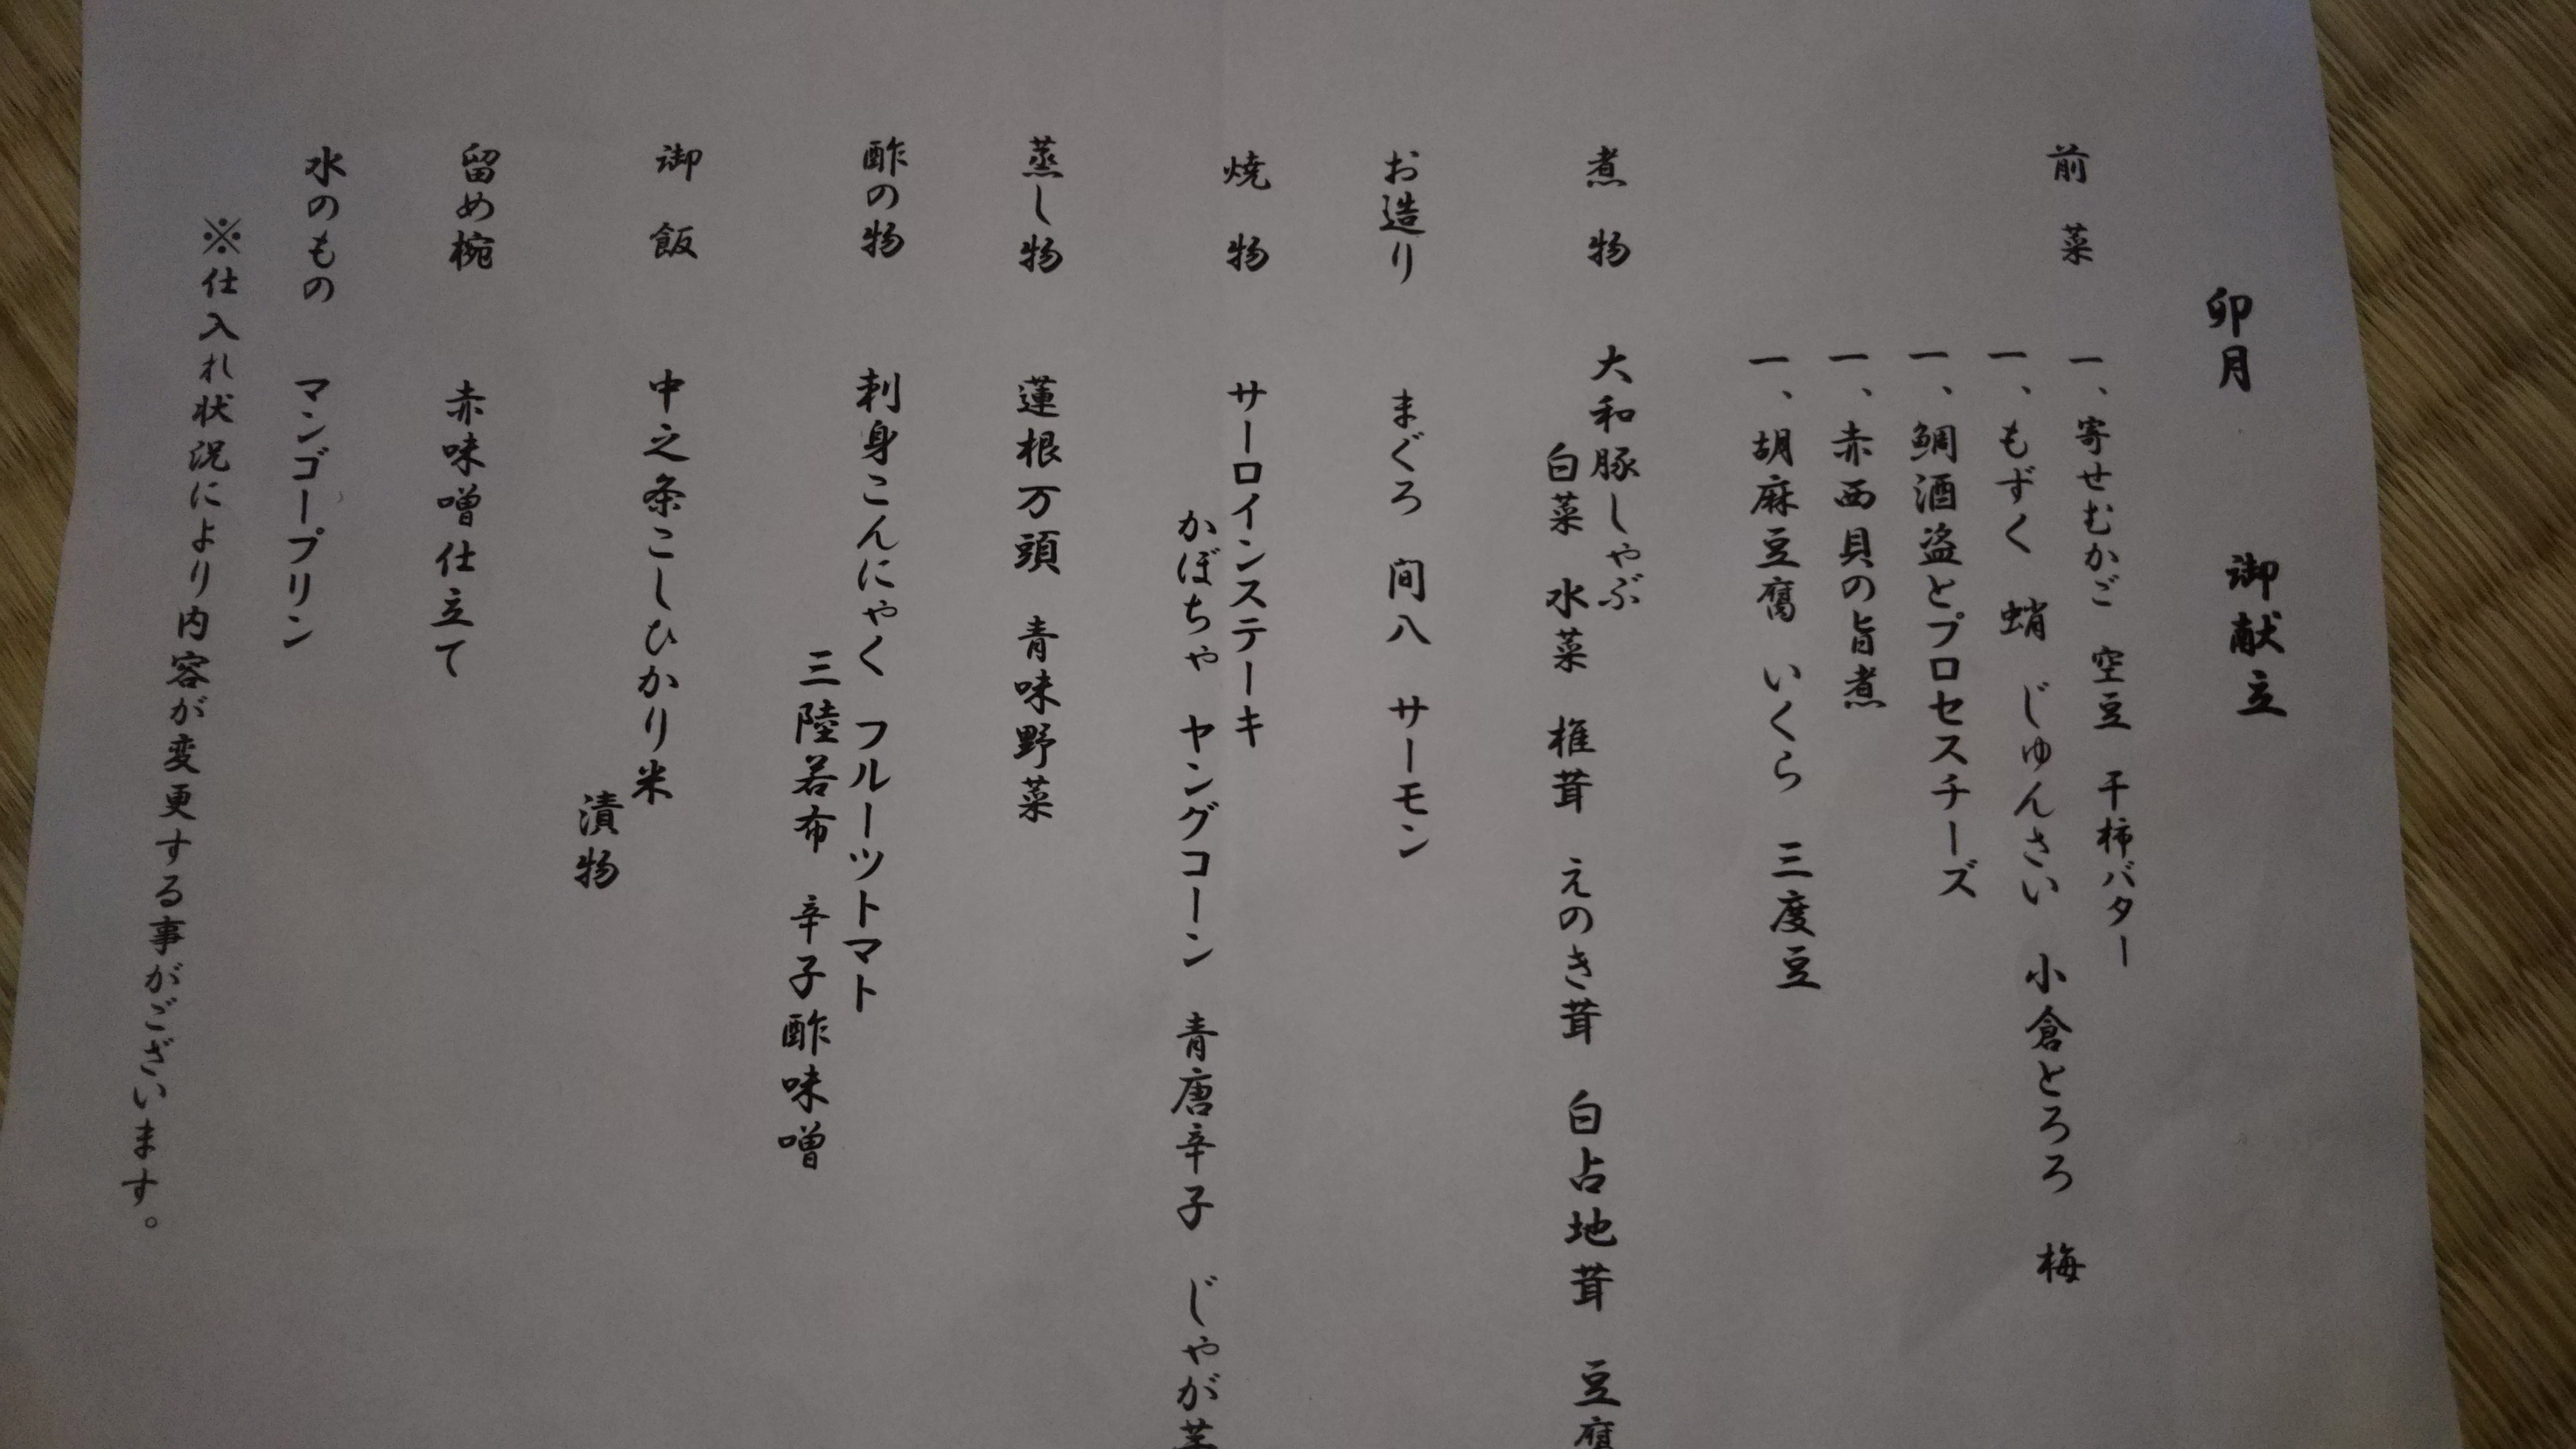 卯月　御献立
前菜　一、寄せむかご　空豆　干柿バター
一、もずく　蛸　じゅんさい　小倉とろろ　梅
一、鯛酒盗とプロセスチーズ
一、赤西貝の旨煮
一、胡麻豆腐　いくら　三度豆
煮物　大和豚しゃぶ
白菜　水菜　椎茸　えのき茸　白占地茸　豆腐
お造り　まぐろ　間八　サーモン
焼物　サーロインステーキ
かぼちゃ　ヤングコーン　青唐辛子　じゃが芋
蒸し物　蓮根万頭　青味野菜
酢の物　刺身こんにゃく　フルーツトマト
三陸若布　辛子酢味噌
御飯　中之条こしひかり米
漬物
留め椀　赤味噌仕立て
水のもの　マンゴープリン
※仕入れ状況により内容が変更する事がございます。